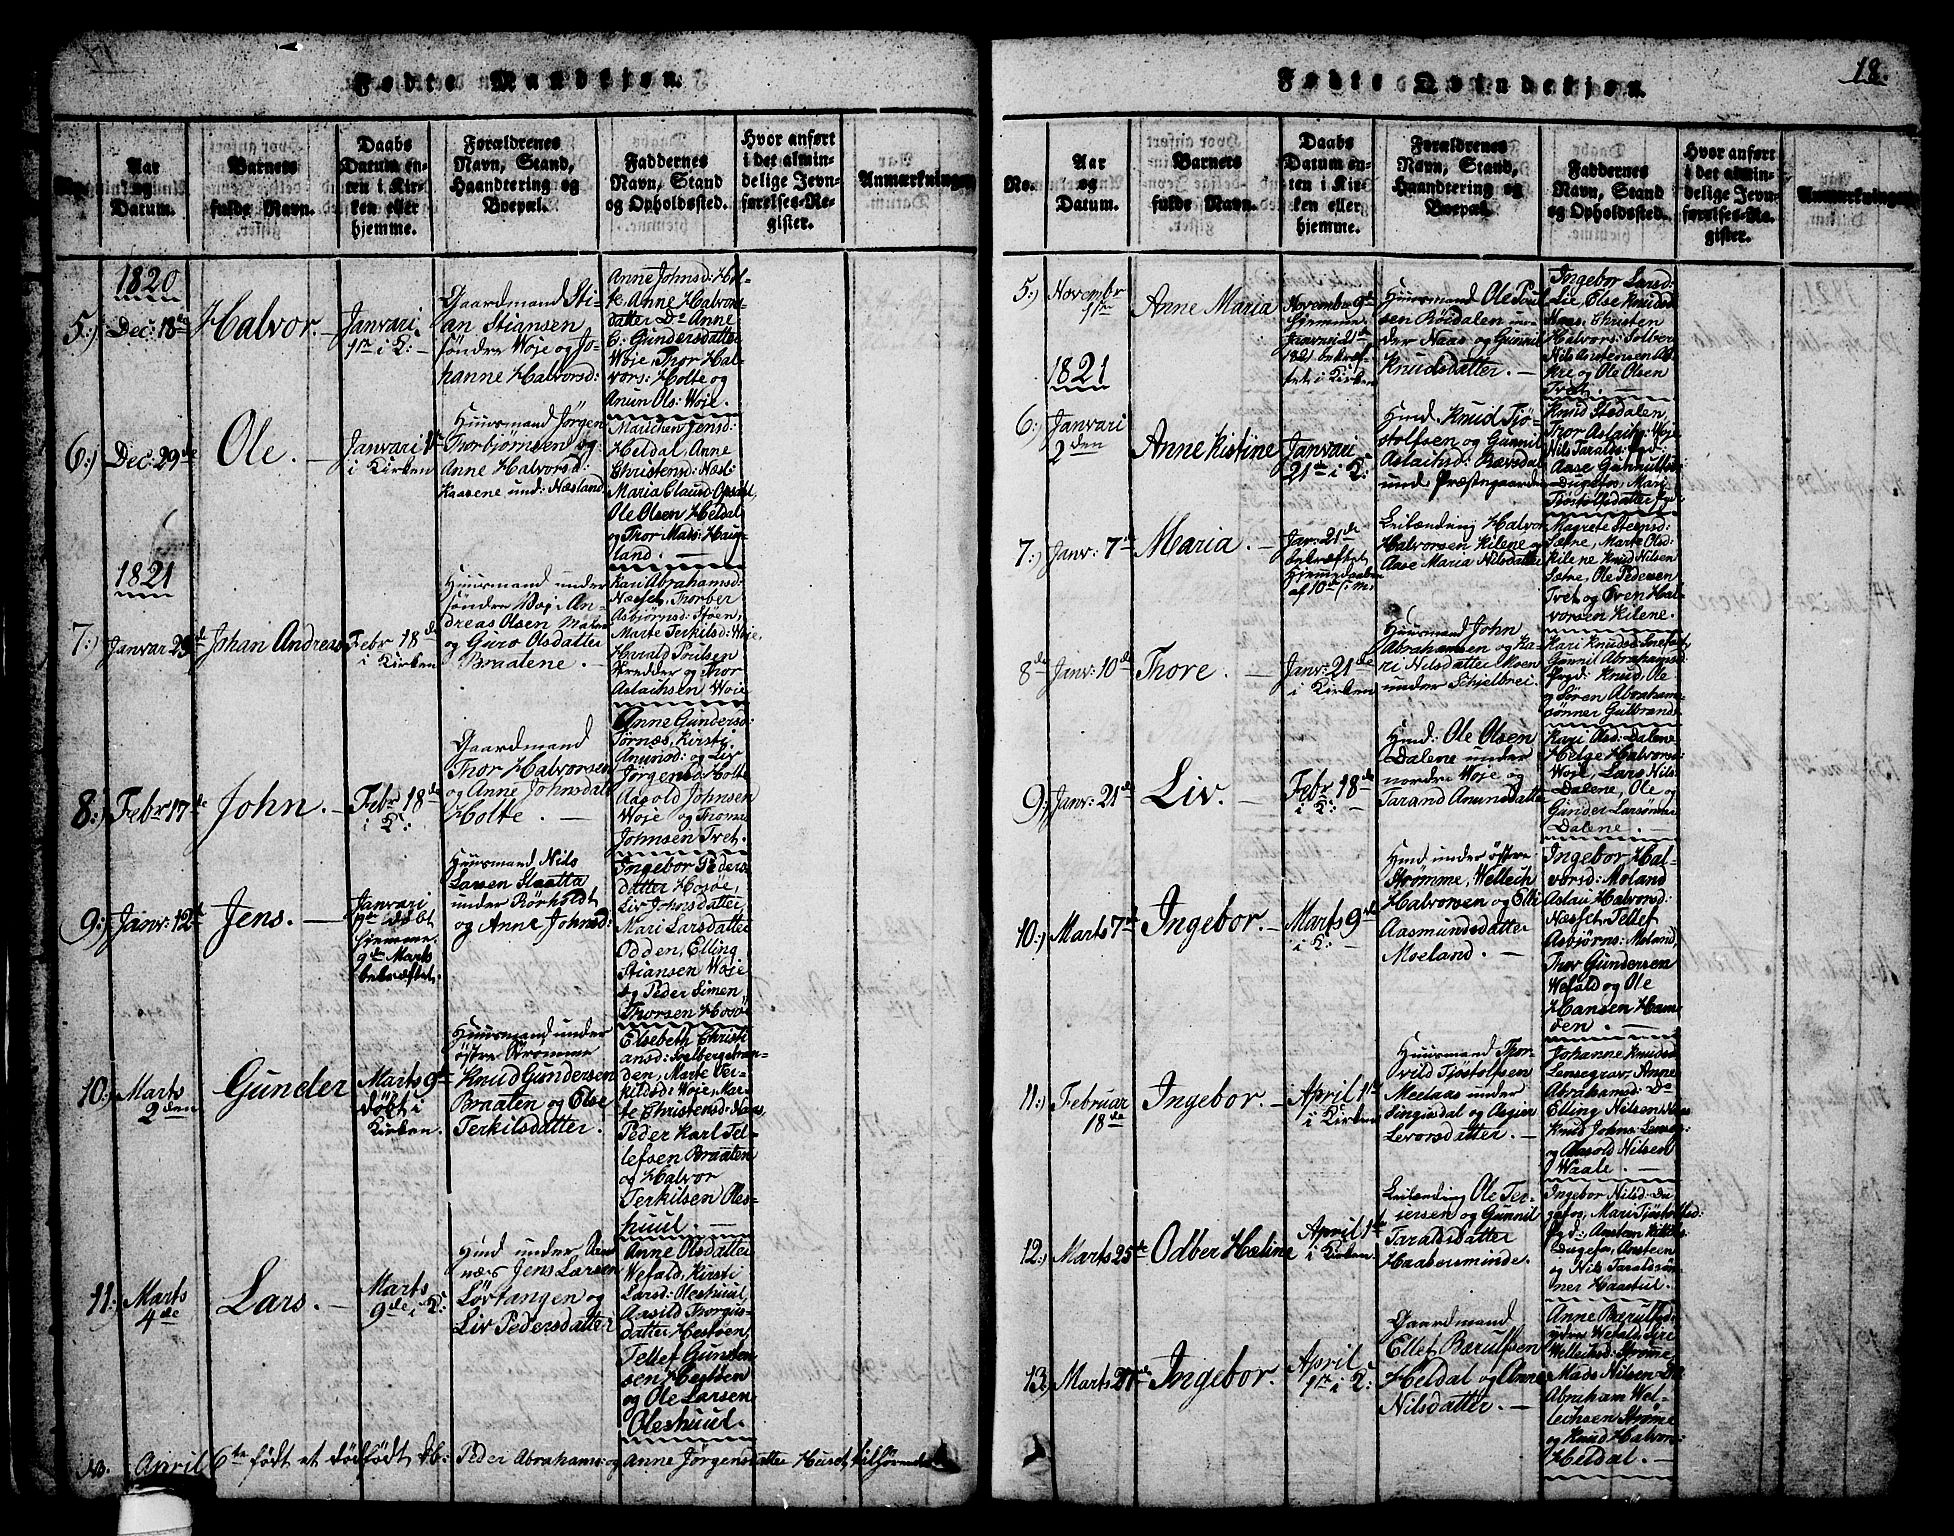 17
Fødte Mandkjøn.
No.
Aar
og
Datum.
Barnets
fulde Navn.
Daabs
Datum en-
ten i Kir-
ken eller
hjemme.
Forældrenes
Navn, Stand,
Haandtering og
Boepæl.
Faddernes
Navn, Stand
og Opholdssted.
Hvor anført
i det almin-
delige Jevn-
førelses-Re-
gister.
Anmærkninger
1820
5:) Dec: 18de
Halvor. —
Janvari
1ste i K: —
Gaardmand Sti-
an Stiansen
søndre Woje og Jo-
hanne Halvorsd:
Anne Johnsd: Hol-
Anne Halvors-
datter Do Anne
Gundersdatter
Woje, Thor Hal-
vors: Holte og
Anun Ols: Woje.
6:) Dec: 29de
Ole. —
Janvari 1ste
i Kirken
Huusmand Jørgen
Thorbjørnsen og
Anne Halvorsd:
Kaasene und: Næsland
Jensd:
Heldal, Anne
Christensd: Næsl:
Maria Clausd: Opsahl,
Ole Olsen Heldal
og Thor Mads: Haug-
land. —
1821
7:) Janvar 23de
Johan Andreas
Febr 18de
i Kirken
Huusmand under
søndre Woje An-
dreas Olsen
og Guro Olsdatter
Braatene. —
Kari Abrahamsd:
Næsset, Thorber
Asbjørnsd: Støen,
Marte Terkilsd: Woje,
Harald Poulsen
Skredder og Thor
Aslachsen Woje
8:) Febr 17de
John. —
Febr 18de
i K:
Gaardmand
Thor Halvorsen
og Anne Johnsdatt
Holte. —
Anne Gundersd:
Tørnæs, Kirsti
Anunsd: og Liv
Jørgensd: Holte
Aasold Johnsen
Woje og Thome
Johnsen Tvet.
9:) Janv: 12te
Jens. —
Janvari
døbt
hjemme.
9de Marts
bekræftet.
Huusmand Nils
Larsen Slaatta
under Rørholdt
og Anne Johnsd:
Ingebor Peders-
datter Hosøe,
Liv Johnsdatter,
Mari Larsdatter
Odden, Elling
Stiansen Woje
og Peder Simen
Thorsen Hosøe
10:) Marts
2den
Gunder
Marts 9de
døbt i
Kirken.
Huusmand under
østre Strømme
Knud Gundersen
Braaten og Else
Terkilsdatter.
Elsebeth Christi-
ansd: Solbergstran-
den, Marte Ter-
kildsd: Woje, Mar-
te Christensd: Naas,
Peder Karl Tel-
lefsen Braaten
og Halvor
Terkilsen Oles-
huul. —
11:) Marts
4de
Lars. —
Marts
9de i K:
Hmd under
næs Jens Larsen
Lørtangen og
Liv Pedersdatter
Anne Olsdatter
Wefald, Kirsti
Larsd: Oleshuul,
Aasild Thorgus-
datter Hestøen,
Tellef Gunnun-
sen Hestøen
og Ole Larsen
Oleshuul.
NB. April 6te født et dødfødt db: Peder Abrahams: og Anne Jørgensdatter Huset tilhørende
18.
Fødte Qvindekjøn.
No.
Aar
og
Datum.
Barnets
fulde Navn.
Daabs
Datum en-
ten i Kir-
ken eller
hjemme.
Forældrenes
Navn, Stand,
Haandtering og
Boepæl.
Faddernes
Navn, Stand
og Opholdssted.
Hvor anført
i det almin-
delige Jevn-
førelses-Re-
gister.
Anmærkninger
5:) Novembr
Anne Maria
Novembr 9de
hjemme
Janvari 21de
1821 bekræf-
tet i Kirken
Huusmand Ole Poul-
sen Bøidalen un-
der Naas og Gunnil
Knudsdatter. —
Ingebor Larsd:
Lie Else Knudsd:
Naas, Christen
Halvors: Solber
Nils Anstensen
og Ole Olsen
Tvet. —
1821
6:) Janvari
2den
Anne Kistine
Janvari
21de i K:
Hmd. Knud Tjø-
stolfsen og Gunnil
Aslachsd: Bævsdal
und Præstegaarden
Knud Stedalen,
Thor Aslachs: Woje
Nils Taralds:
Aase Gunnulfsd:
Dugefos, Mari
Tjøstolfsdatter
7:) Janv: 7de
Maria. —
Jan: 21de
bekræftet,
hjemmedaaben
af 10de s: m:
Leilænding Halvor
Halvorsen Kilene og
Aase Maria Nilsdatter
Magrete Steensd:
Sætre, Marte Olsd:
Kilene Knud Nilsen
Sætre, Ole Pedersen
Tvet og Even Hal-
vorsen Kilene.
8de Janv: 10de
Thore. —
Janv: 21de
i Kirken
Huusmand John
Abrahamsen og Ka-
ri Nilsdatter Moen
under Schielbrei.
Kari Knudsd:
Gunnil Abrahamsd:
Knud, Ole
og Søren Abraham-
sønner Gulbrand
9:) Janv: 21de
Liv. —
Febr 18de
i K:
Hmd: Ole Olsen
Dalene under
nordre Woje og
Tarand Anunsdatter
Kari Olsd: Dalene
Helge Halvorsd:
Woje, Lars Nils:
Dalene, Ole og
Gunder Larsønner
Dalene. —
10:) Marts 7de
Ingebor. —
Marts 9de
i K: —
Hmd under østre
Strømme, Wellech
Halvorsen og Elli
Aasmundsdatter
Moeland. —
Ingebor Hal-
vorsd: Moland
Aslau Halvorsd:
Næsset, Tellef
Asbjørns: Moland,
Thor Gundersen
Wefald og Ole
Hansen
10:) —
11:) Februar
18de
Ingebor. —
April 1ste
i Kirken
Huusmand Thor-
vild Tjøstolfsen
Meelaas under
Lingisdal og Asgier
Levorsdatter. —
Johanne Knudsd:
Lensegrav, Anne
Abrahamsd: Do
Elling Nilsen
Knud Johns: Lenseg:
og Aasold Nilsen
Waale. —
12:) Marts 25de
Odber Haline
April 1ste
i Kirken
Leilænding Ole Ter-
jersen og Gunnil
Taraldsdatter
Haabesminde.
Ingebor Nilsd: Du-
gefos, Mari Tjøstolfsd:
Dugefos, Ansteen
og Nils Taraldsøn-
ner Haastul. —
13) Marts 27de
Ingebor.
April
1ste i K:
Gaardmand
Ellef Børulfsen
Heldal og Anne
Nilsdatter. —
Anne Børulfsd:
Wefald, Sire
Wellechsd: Strøme
Mads Nilsen
Abraham Wel-
lechsen Strøme
og Knud Halvors:
Heldal. —